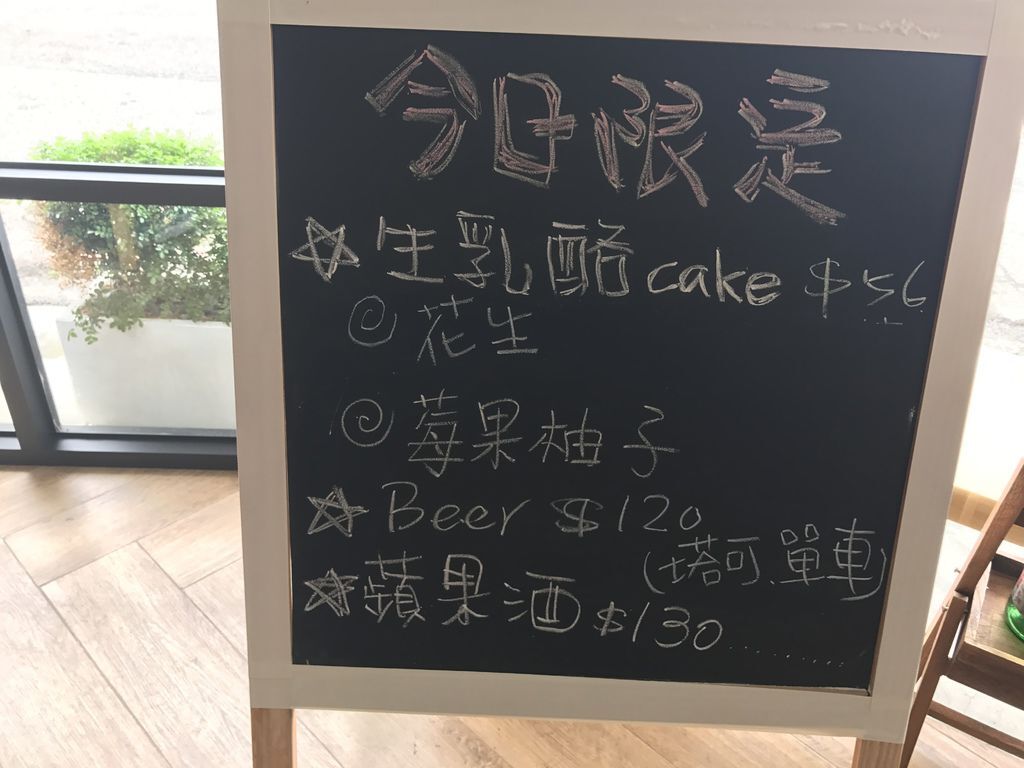 今日限定
☆生乳酪cake $56
花生
莓果柚子
☆Beer $120
(塔可.單車)
☆蘋果酒 $130..........